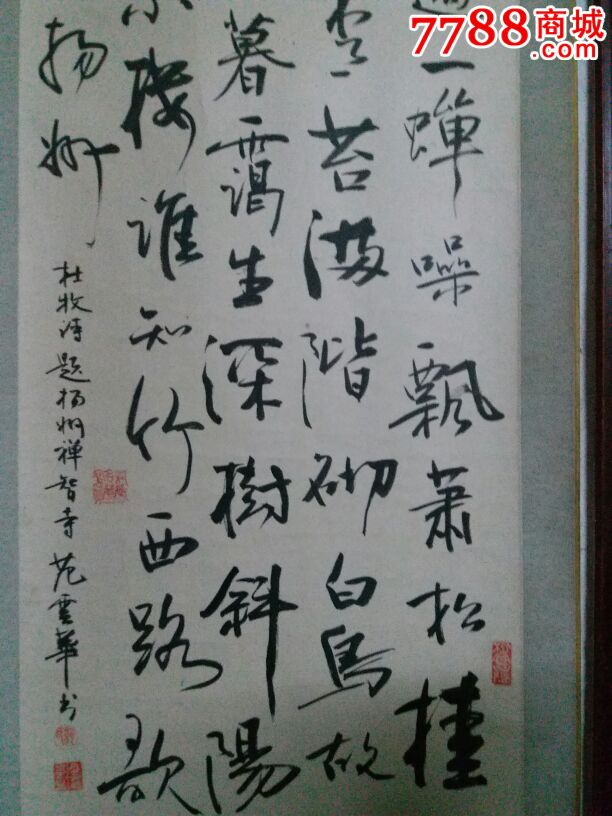 7788商城
一蟬噪飄蕭松桂
青苔滿階砌白鳥故
暮靄生深樹斜陽
小樓誰知竹西路歌
揚州
杜牧詩題揚州禪智寺 范雲華书